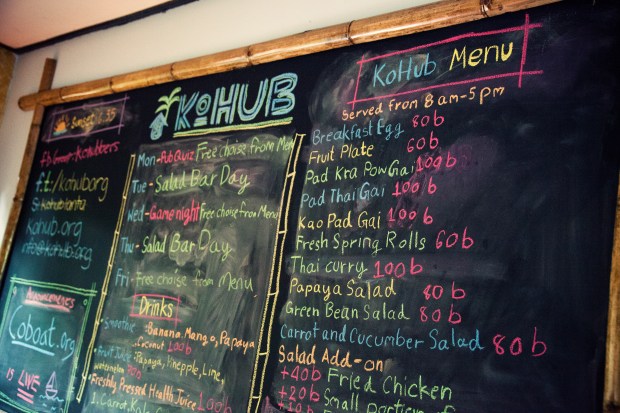 Sunset
fb group: Kohubbers
f.t:/kohuborg
S: kohublanta
kohub.org
info@kohub.org
Announcements
Coboat.org
IS LIVE
KOHUB
Mon - Pub Quiz Free choise from Menu
Tue - Salad Bar Day
Wed - Game night Free choise from Menu
Thu - Salad Bar Day
Fri - Free choise from Menu
Drinks
• Smoothie - Banana, Mango, Papaya
Coconut 100b
• Fruit Juice
Papaya, Pinepple, Lime,
watermelon
• Freshly Pressed Health Juice 100b
1. Carrot,
KoHub Menu
Served from 8am-5pm
Breakfast Egg 80b
Fruit Plate 60b
Pad Kra Pow Gai 100b
Pad Thai Gai 100b
Kao Pad Gai 100b
Fresh Spring Rolls 60b
Thai curry 100b
Papaya Salad 80b
Green Bean Salad 80b
Carrot and Cucumber Salad 80b
Salad Add-on
+40b Fried Chicken
+20b Small
+10b